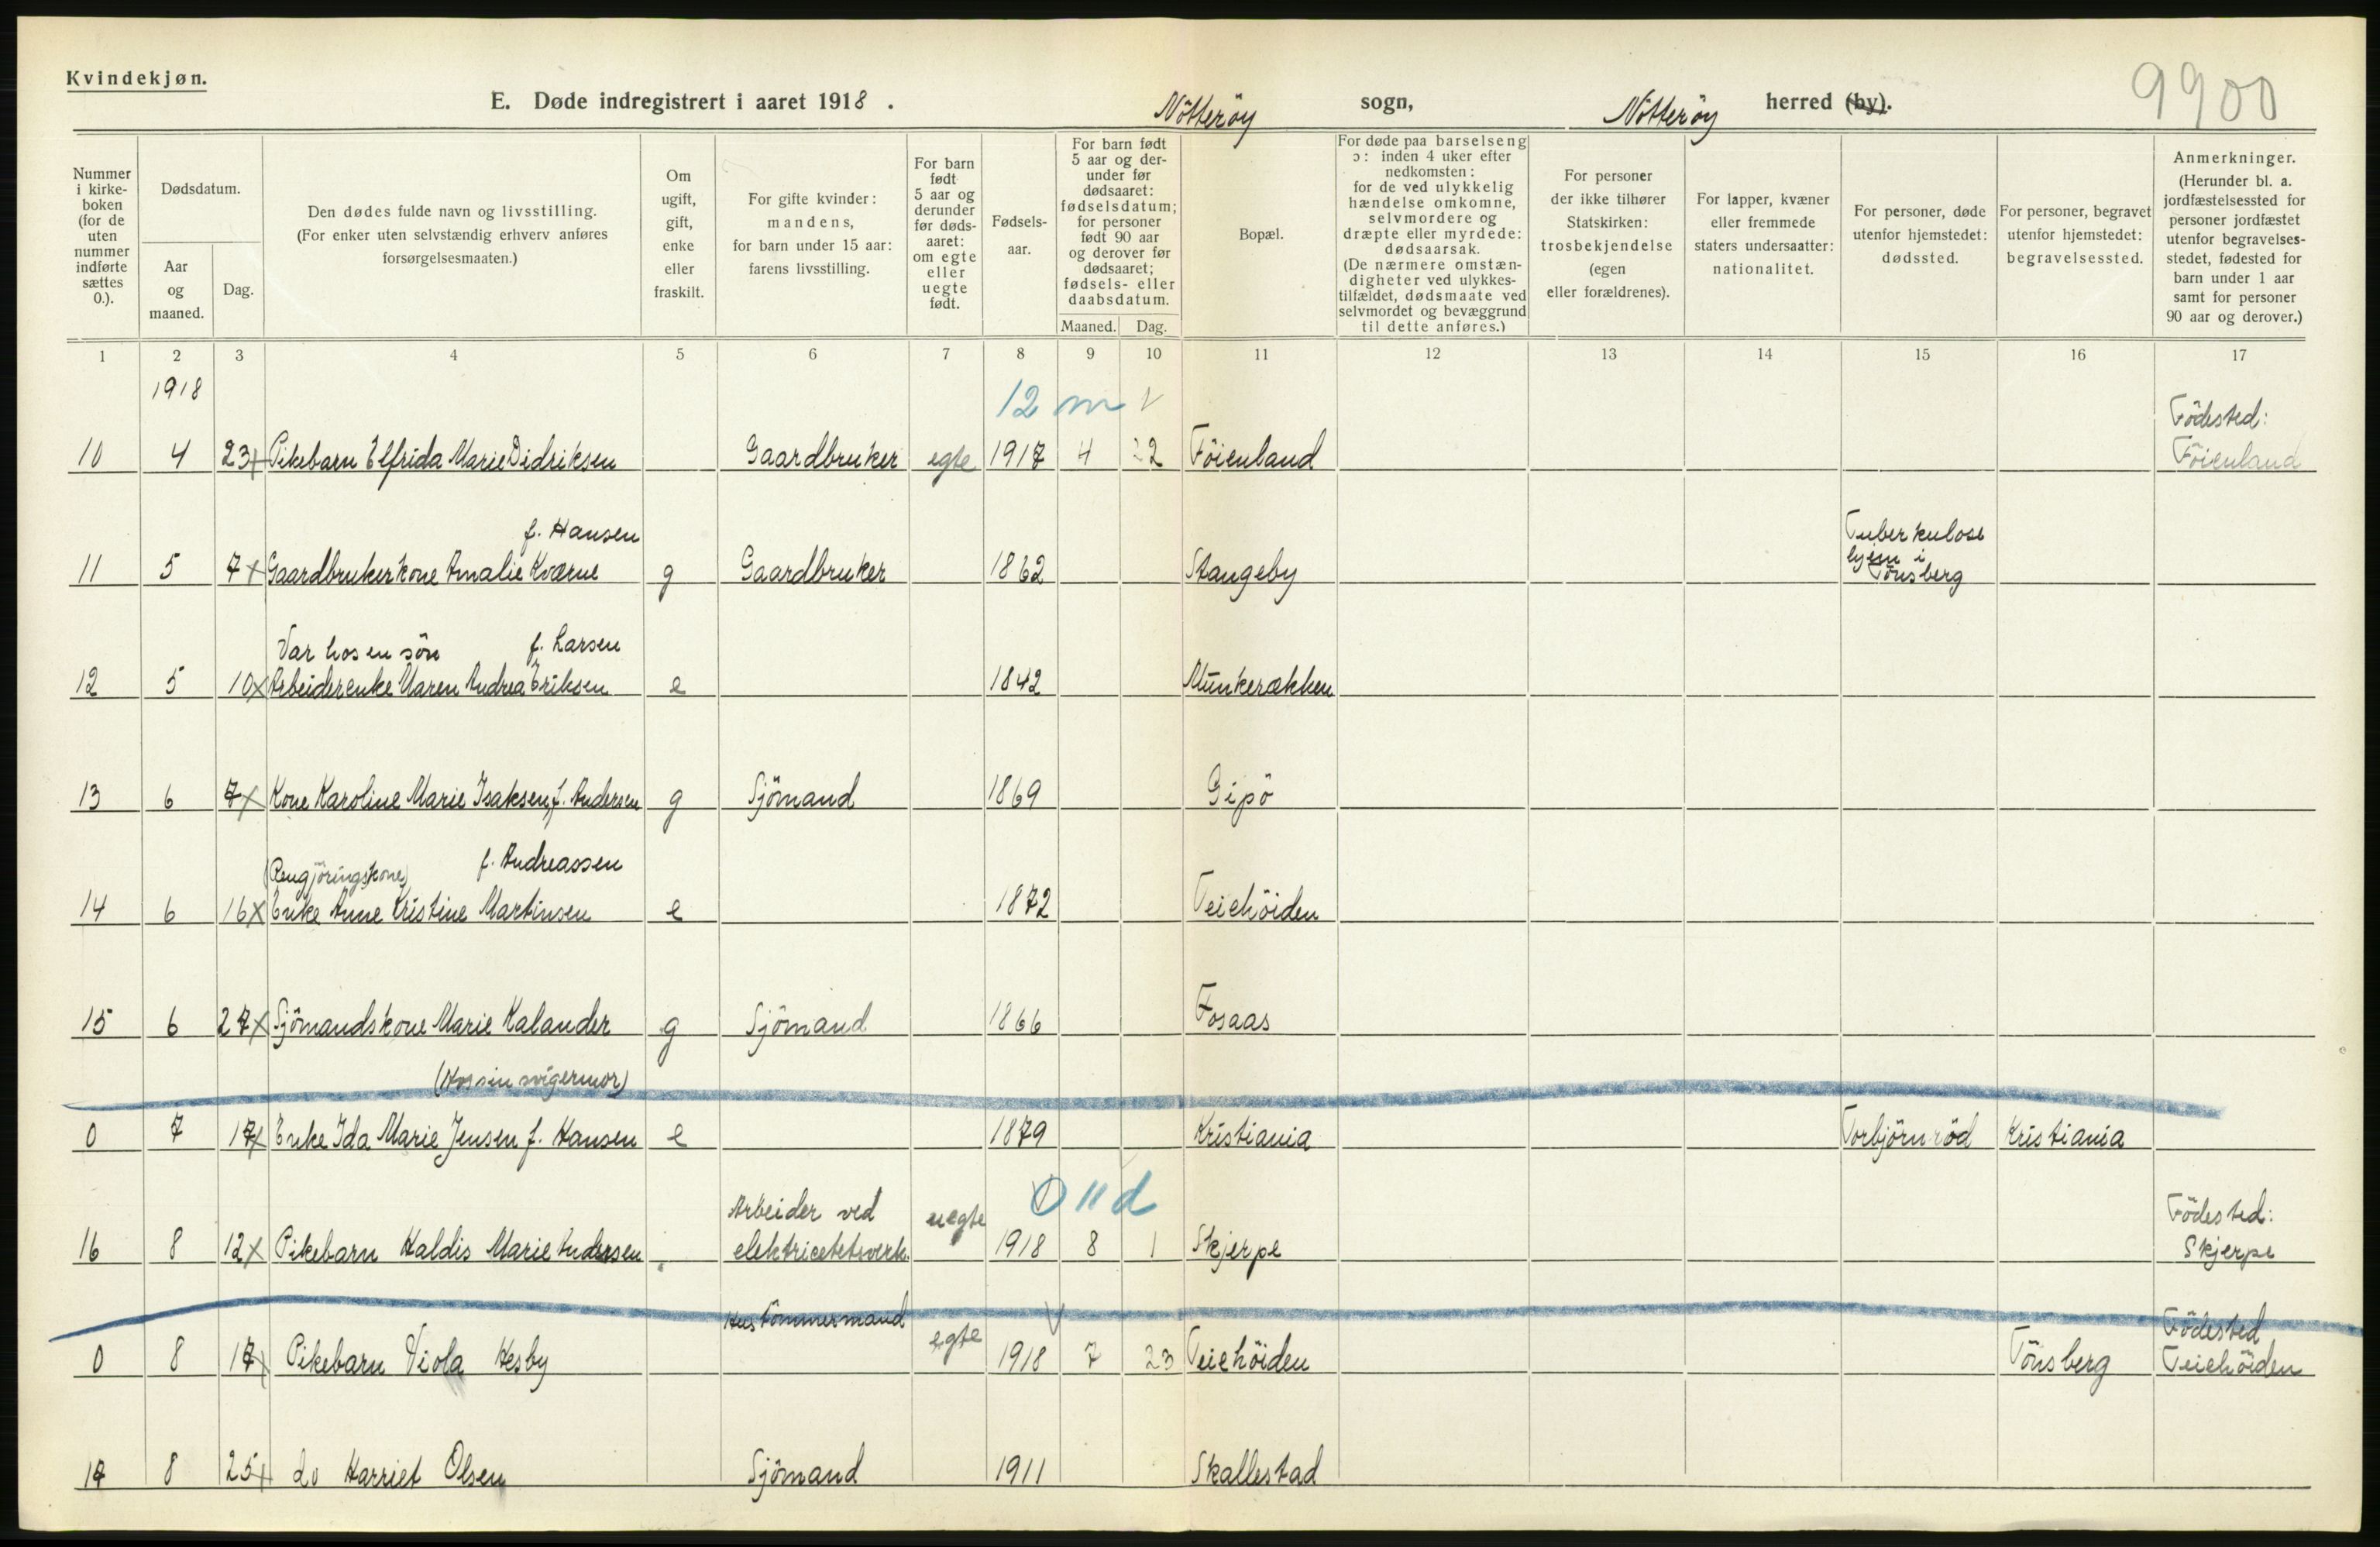 Kvindekjøn.
9900
E. Døde indregistrert i aaret 1918 . Nötteröy sogn, Nötteröy herred (by).
Nummer i kirke- boken (for de uten nummer indførte sættes 0.).
Dødsdatum.
Aar og maaned.
Dag.
Den dødes fulde navn og livsstilling.
(For enker uten selvstændig erhverv anføres
forsørgelsesmaaten.)
Om ugift, gift, enke eller fraskilt.
For gifte kvinder:
mandens,
for barn under 15 aar:
farens livsstilling.
For barn født 5 aar og derunder før døds- aaret: om egte eller uegte født.
Fødsels- aar.
For barn født 5 aar og der- under før dødsaaret: fødselsdatum; for personer født 90 aar og derover før dødsaaret; fødsels- eller daabsdatum.
Maaned. Dag.
Bopæl.
For døde paa barselseng
ɔ: inden 4 uker efter
nedkomsten:
for de ved ulykkelig
hændelse omkomne,
selvmordere og
dræpte eller myrdede:
dødsaarsak.
(De nærmere omstæn-
digheter ved ulykkes-
tilfældet, dødsmaate ved
selvmordet og bevæggrund
til dette anføres.)
For personer
der ikke tilhører
Statskirken:
trosbekjendelse
(egen
eller forældrenes).
For lapper, kvæner
eller fremmede
staters undersaatter:
nationalitet.
For personer, døde
utenfor hjemstedet:
dødssted.
For personer, begravet
utenfor hjemstedet:
begravelsessted.
Anmerkninger.
(Herunder bl. a.
jordfæstelsessted for
personer jordfæstet
utenfor begravelses-
stedet, fødested for
barn under 1 aar
samt for personer
90 aar og derover.)
1 2 3 4 5 6 7 8 9 10 11 12 13 14 15 16 17
1918
12 m
Födested:
10 4 23 Pikebarn Elfrida Marie Didriksen Gaardbruker egte 1917 4 22 Föienland Föienland
f. Hansen Tuberkulose
hjem i
11 5 7 Gaardbrukerkone Amalie Kværne g Gaardbruker 1862 Stangeby Tönsberg
Var hos en sön f. Larsen
12 5 10 Arbeiderenke Maren Andrea Eriksen e 1842 Munkerækken
13 6 7 Kone Karoline Marie Isaksen, f. Andersen g Sjömand 1869 Gipö
(Rengjöringskone) f. Andreassen
14 6 16 Enke Anne Kristine Martinsen e 1872 Teiehöiden
15 6 27 Sjömandskone Marie Kalander g Sjömand 1866 Fosaas
(Hos sin svigermor)
0 7 17 Enke Ida Marie Jensen f. Hansen e 1879 Kristiania Torbjörnröd Kristiania
0 11 d
Arbeider ved uegte Födested:
16 8 12 Pikebarn Haldis Marie Andersen elektricetetsverk. 1918 8 1 Skjerpe Skjerpe
Hustömmermand Födested
0 8 17 Pikebarn Viola Hesby egte 1918 7 23 Teiehöiden Tönsberg Teiehöiden
17 8 25 do Harriet Olsen Sjömand 1911 Skallestad